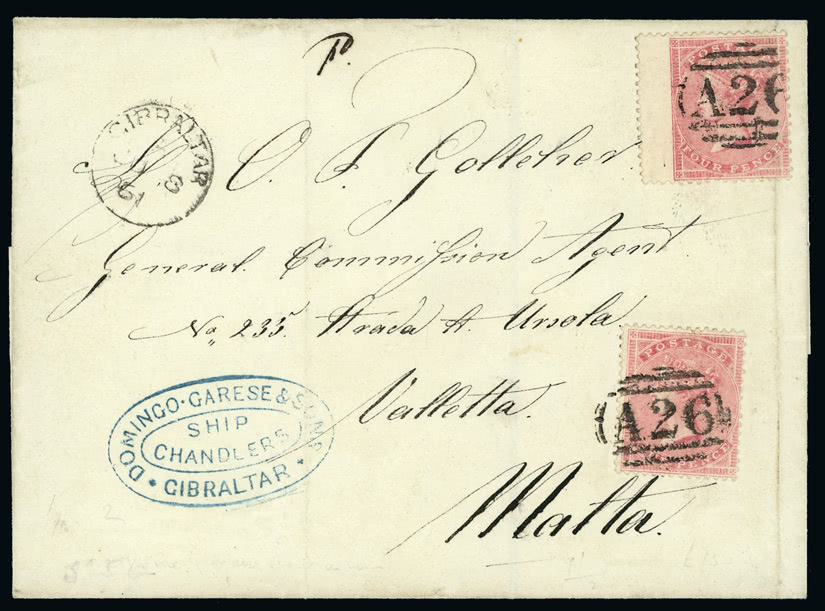 P.
POSTAGE
A26
FOUR PENCE
GIBRALTAR
8
61
O. F. Gollcher
General Commission Agent
No, 235. Strada St. Ursola
Valletta.
Malta.
POSTAGE
A26
PENCE
DOMINGO · GARESE & SONS
SHIP
CHANDLERS
GIBRALTAR